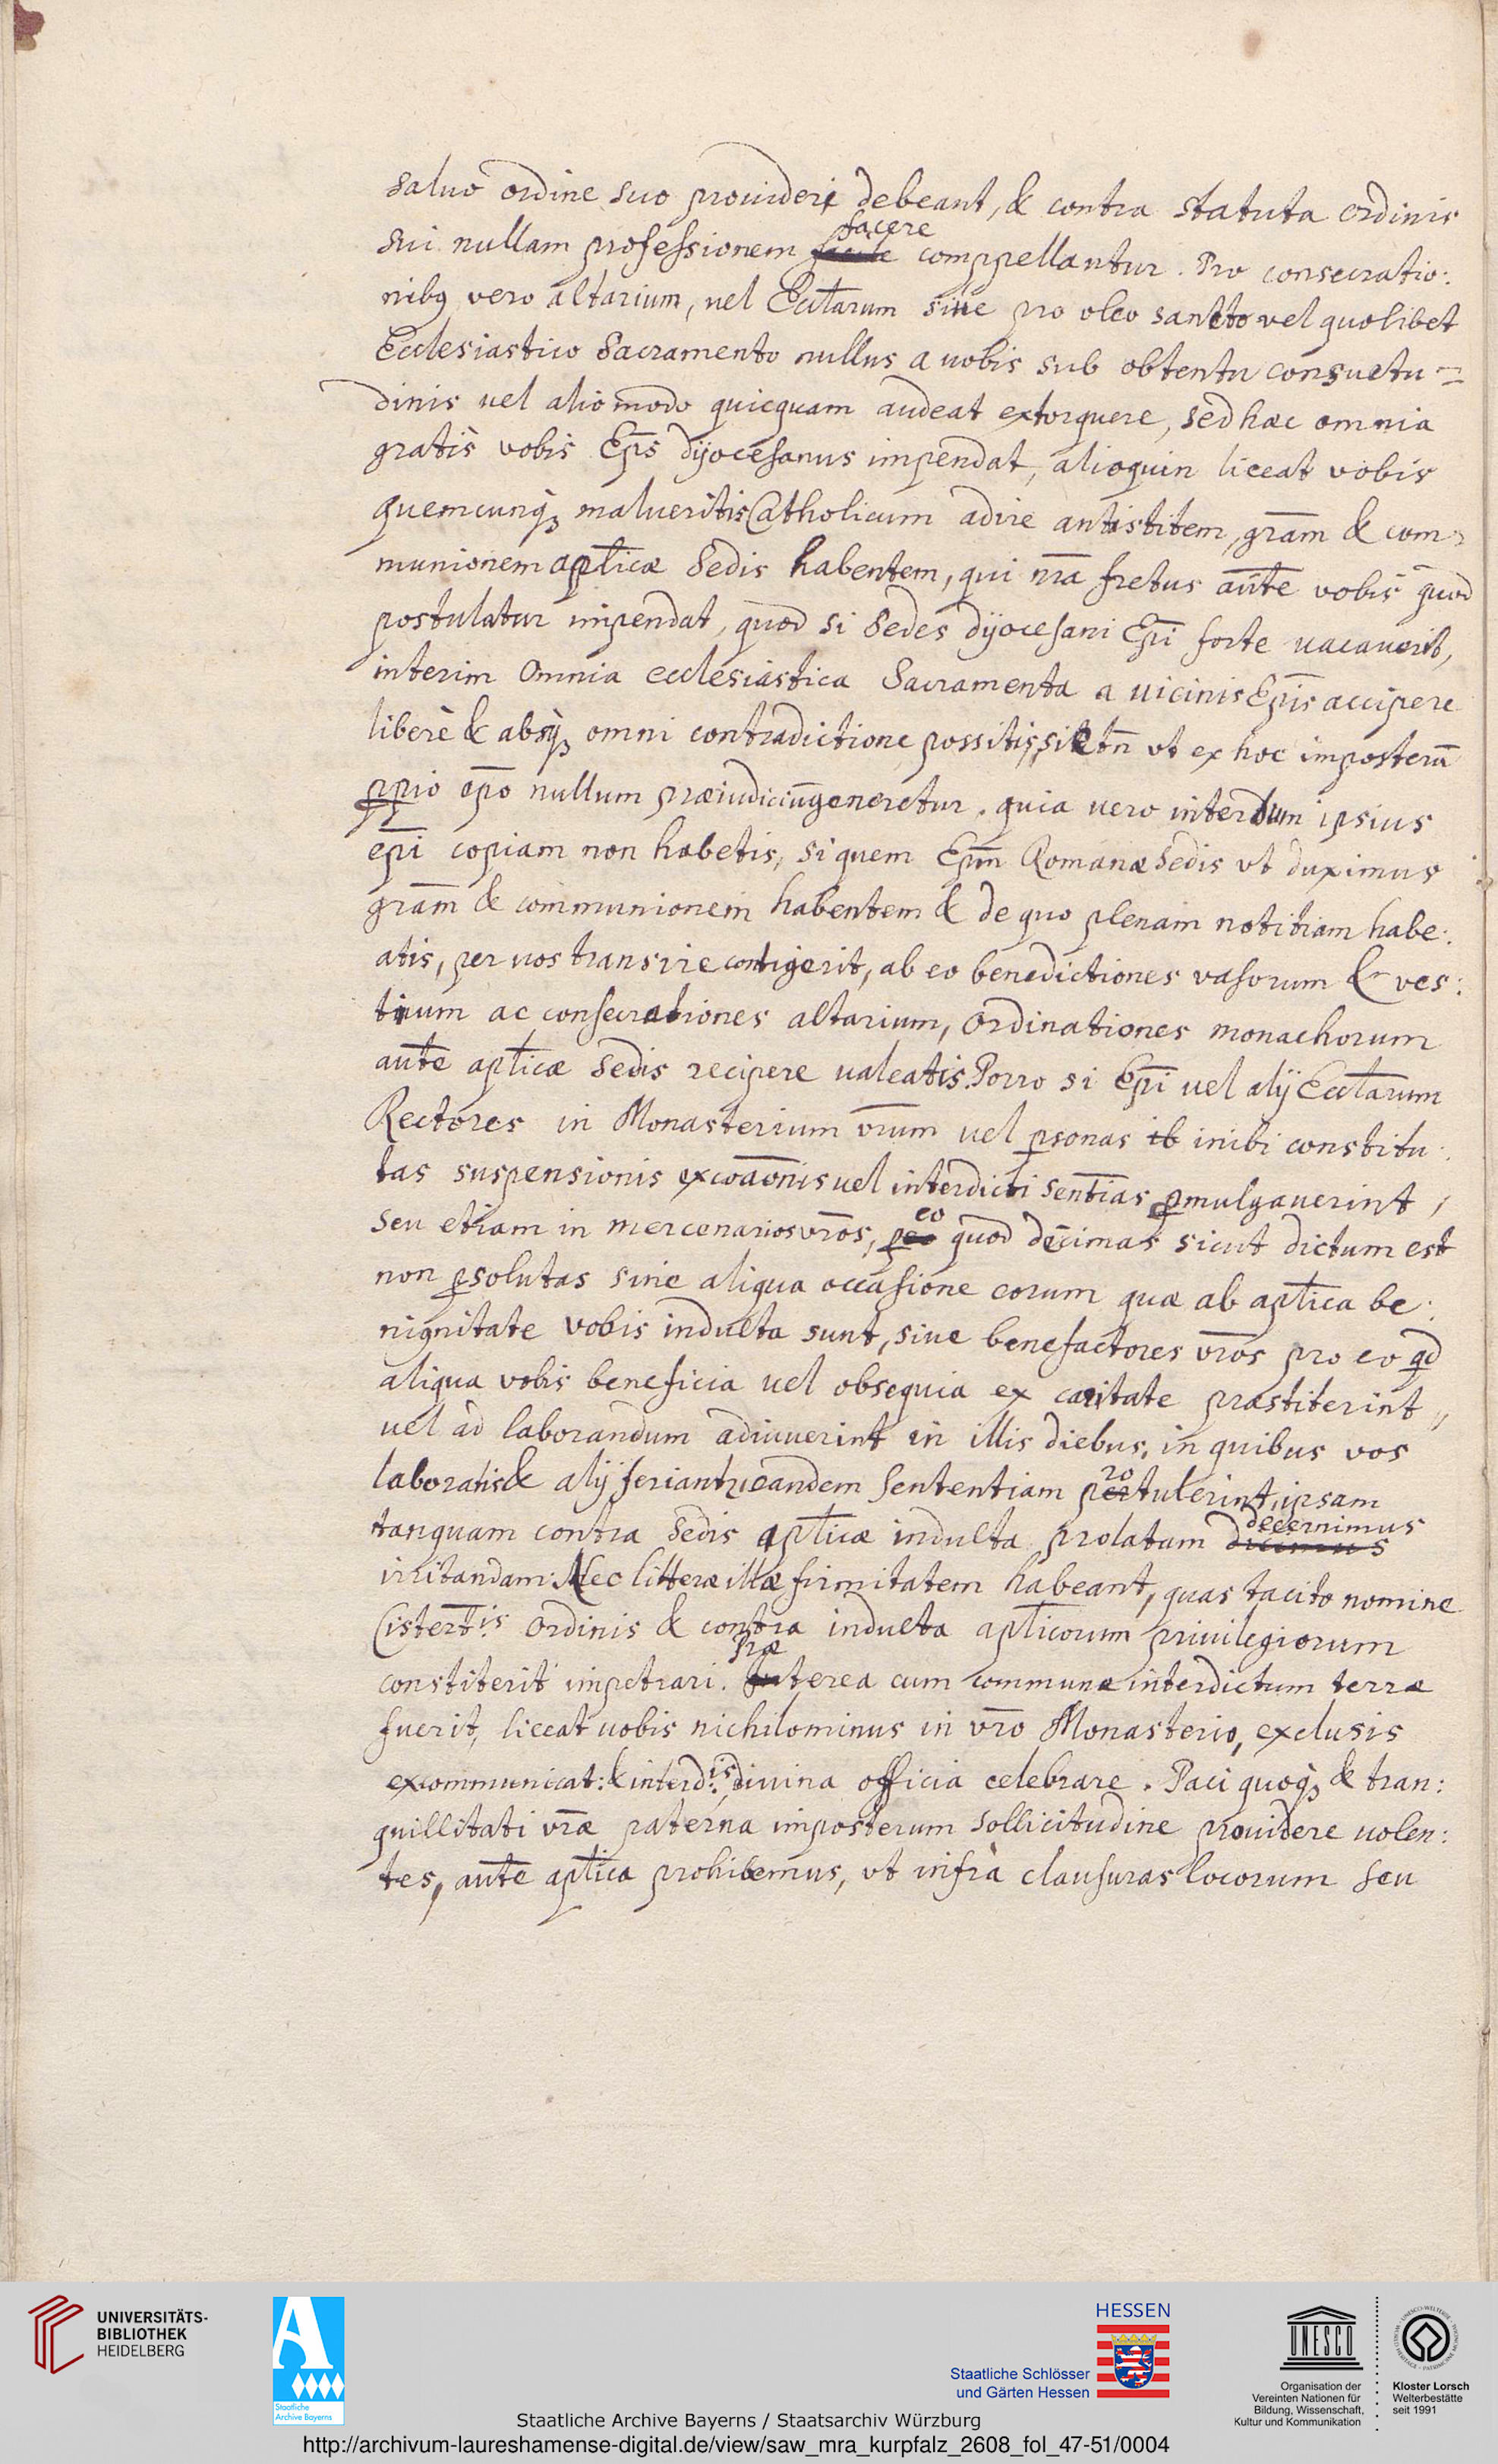 saluo ordine suo prouideri debeant, & contra statuta ordinis
sui nullam professionem facere comppellantur. Pro consecratio:
nibꝯ vero altarium, uel Eccl̅arum siue pro oleo sancto vel quolibet
Ecclesiastico Sacramento nullus a uobis sub obtentu consuetu=
dinis uel alio modo quicquam audeat extorquere, sed haec omnia
gratis vobis Ep̅s dyocesanus impendat, alioquin liceat vobis
quemcunqꝫ malueritis Catholicum adire antistitem, gr̅am & com=
munionem apl̅icæ Sedis habentem, qui nr̅a fretus aut̅e vobis quod
postulatur impendat, quod si Sedes dyocesani Ep̅i forte uacauerit,
interim Omnia ecclesiastica Sacramenta a uicinis Ep̅is accipere
liberè & absqꝫ omni contradictione possitis, sic tn̅ ut ex hoc imposteru̅
ꝓprio ep̅o nullum præiudiciu̅ generetur. quia uero interdum ipsius
ep̅i copiam non habetis, si quem Ep̅m Romanæ Sedis ut duximus
gr̅am & communionem habentem & de quo plenam notitiam habe:
atis, per uos transire contigerit, ab eo benedictiones vasorum & ves:
tium ac consecrationes altarium, Ordinationes monachorum
aut̅e apl̅icæ Sedis recipere ualeatis. Porro si Ep̅i uel alij Eccl̅arum
Rectores in Monasterium vr̅um uel ꝑsonas ib inibi constitu:
tas suspensionis exco̅a̅o̅nis uel interdicti senten̅tias ꝓmulgauerint,
seu etiam in mercenarios vr̅os, p eo quod decimas sicut dictum est
non ꝑsolutas siue aliqua occasione eorum quæ ab apl̅ica be:
nignitate vobis indulta sunt, siue benefactores vr̅os pro eo qd̅
aliqua vobis beneficia uel obsequia ex caritate præstiterint,
uel ad laborandum adiuuerint in illis diebus, in quibus vos
laboratis & alij feriantr, eandem sententiam protulerint, ipsam
tanquam contra Sedis apl̅icæ indulta prolatam decernimus
irritandam: Nec litteræ illæ firmitatem habeant, quas tacito nomine
Cistert̅is Ordinis & contra indulta apl̅icorum priuilegiorum
constiterit impetrari. Præterea cum commune interdictum terræ
fuerit, liceat uobis nichilominus in vr̅o Monasterio, exclusis
excommunicat: & interd:is, diuina officia celebrare. Paci quoqꝫ & tran:
quillitati vr̅æ paterna imposterum sollicitudine prouidere uolen:
tes, aut̅e apl̅ica prohibemus, ut infrà clausuras locorum seu
UNIVERSITÄTS-
BIBLIOTHEK
HEIDELBERG
Staatliche
Archive Bayerns
HESSEN
Staatliche Schlösser
und Gärten Hessen
UNESCO
Organisation der
Vereinten Nationen für
Bildung, Wissenschaft,
Kultur und Kommunikation
Kloster Lorsch
Welterbestätte
seit 1991
Staatliche Archive Bayerns / Staatsarchiv Würzburg
http://archivum-laureshamense-digital.de/view/saw_mra_kurpfalz_2608_fol_47-51/0004